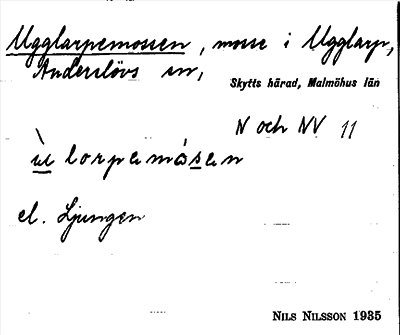 Ugglarpemossen, mosse i Ugglarp,
Anderslövs sn,
Skytts härad, Malmöhus län
N och NV 11
ù lorpamåsan
el. Ljungen
NILS NILSSON 1935